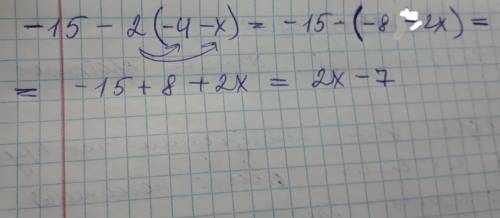 -15 - 2(-4 - x) = -15 - (-8 - 2x) =
= -15 + 8 + 2x = 2x - 7